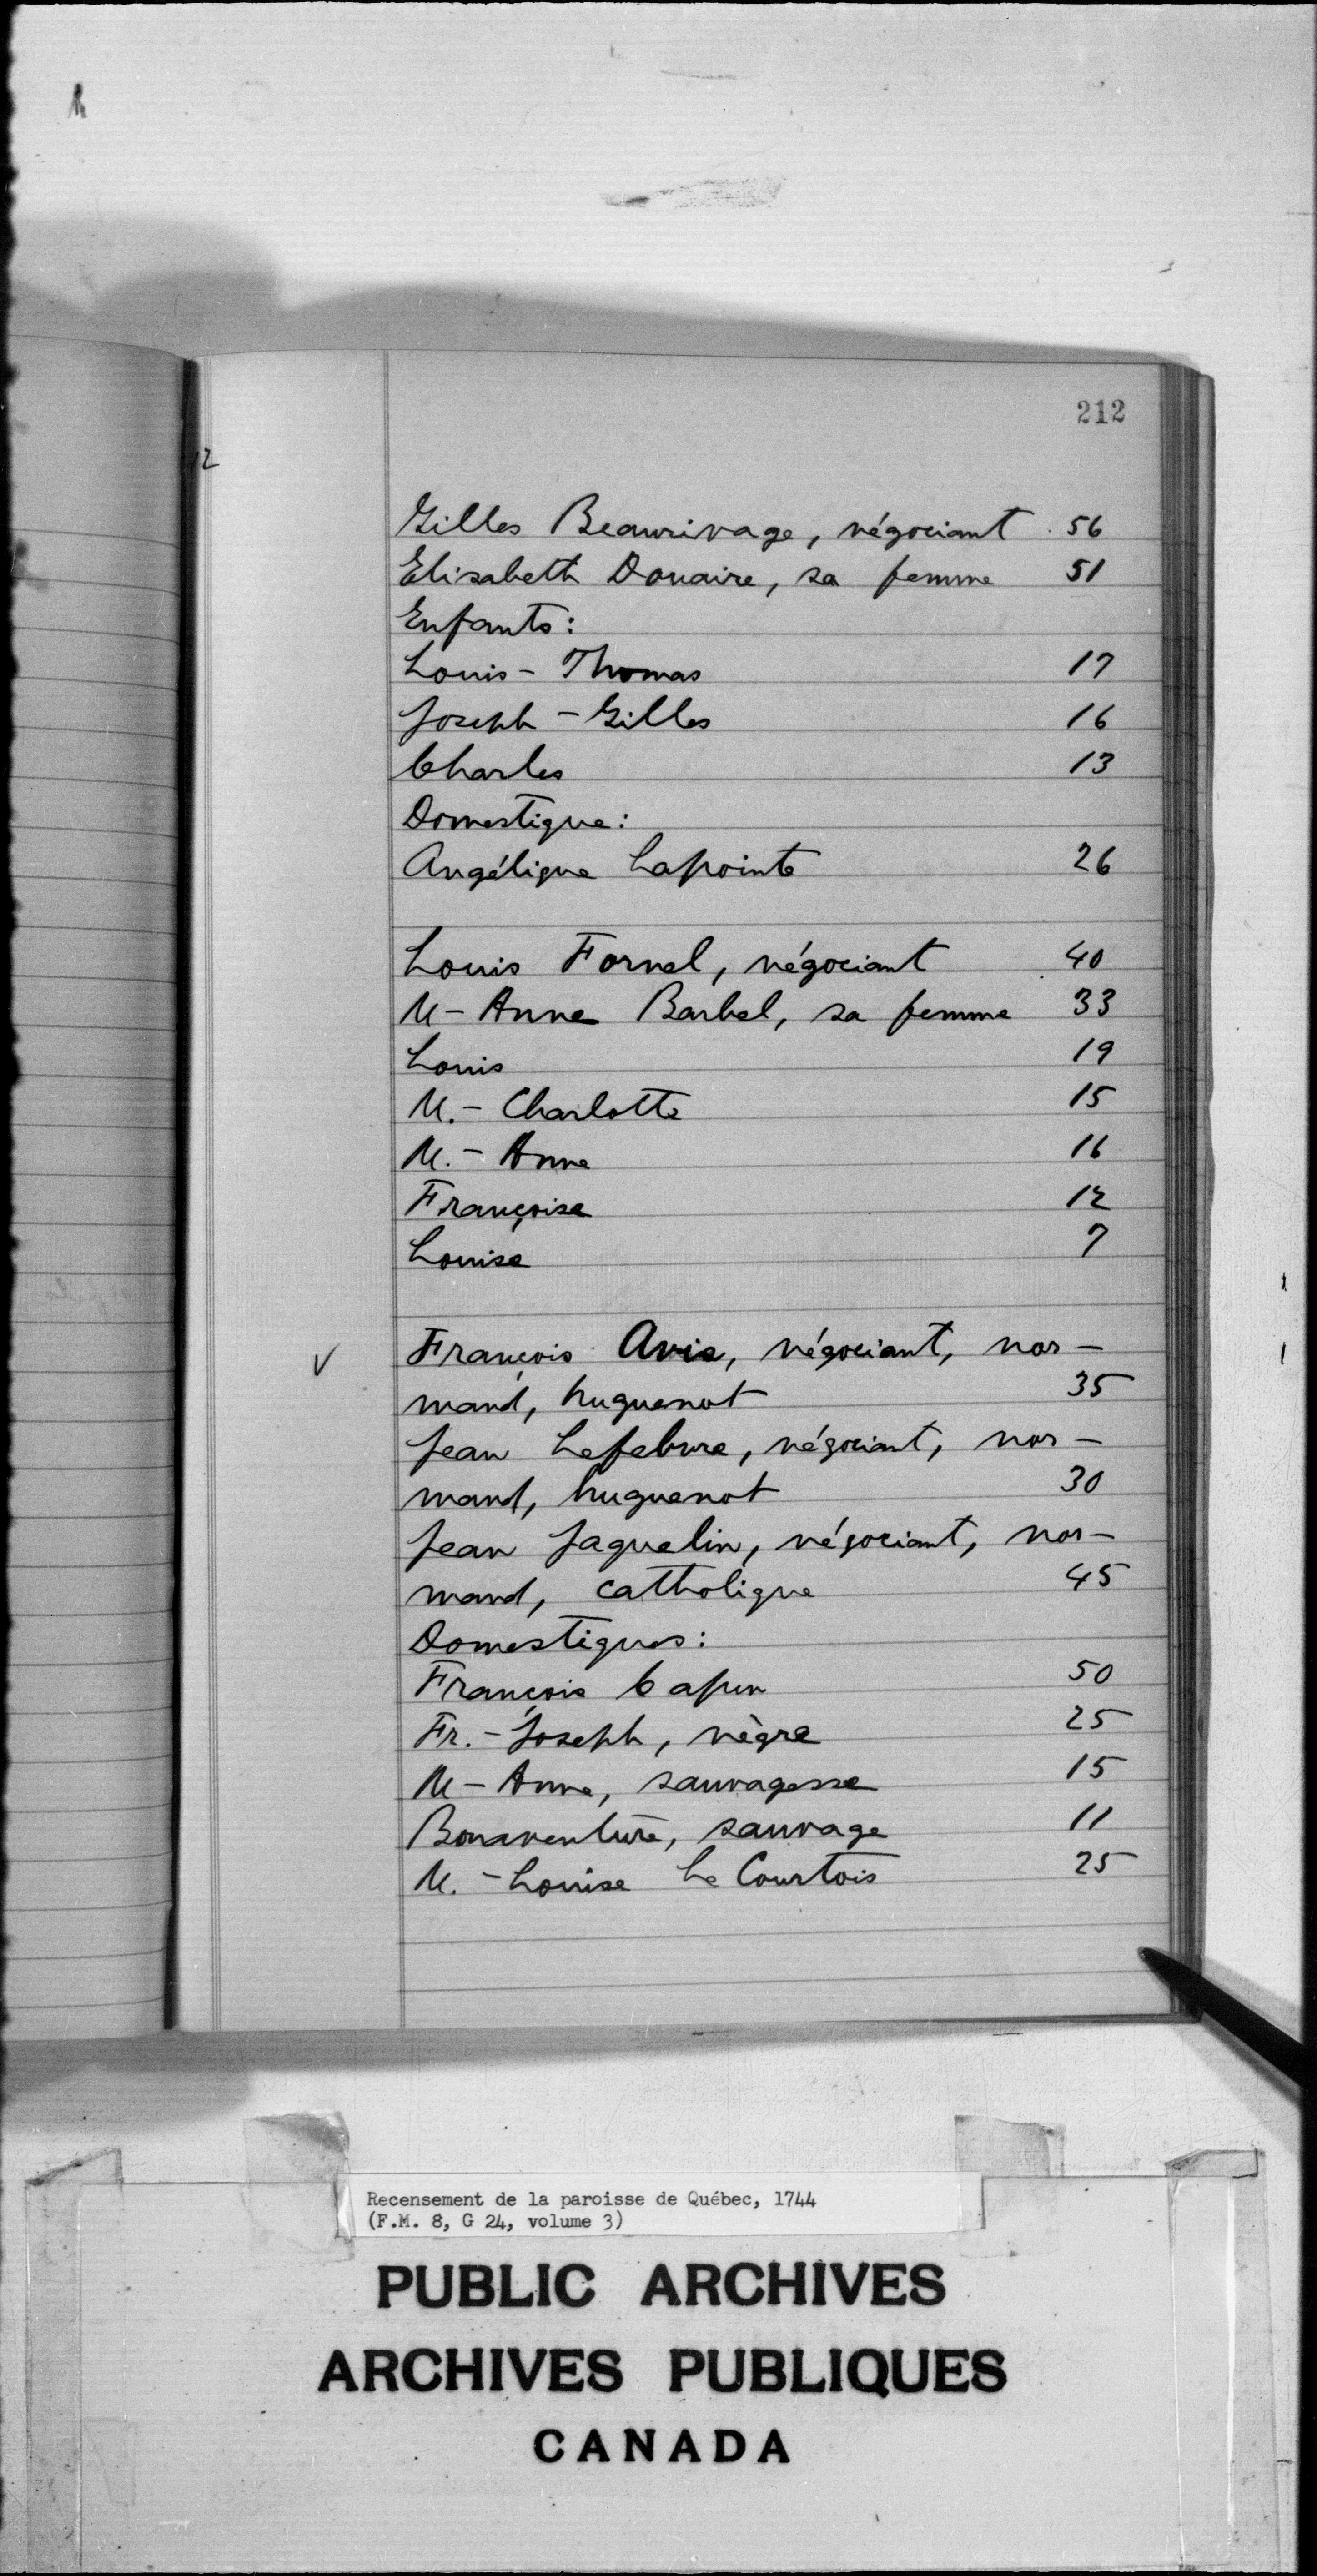 212
12
Gilles Beaurivage, négociant 56
Elisabeth Douaire, sa femme 51
Enfants:
Louis-Thomas 17
Joseph-Gilles 16
Charles 13
Domestique:
Angélique Lapointe 26
Louis Fornel, négociant 40
M-Anne Barbel, sa femme 33
Louis 19
M.-Charlotte 15
M.-Anne 16
Françoise 12
Louise 7
François Avis, négociant, nor-
mand, huguenot 35
Jean Lefebvre, négociant, nor-
mand, huguenot 30
Jean Jaquelin, négociant, nor-
mand, catholique 45
Domestiques:
François Capun 50
Fr.-Joseph, nègre 25
M-Anne, sauvagesse 15
Bonaventure, sauvage 11
M.-Louise Le Courtois 25
Recensement de la paroisse de Québec, 1744
(F.M. 8, G 24, volume 3)
PUBLIC ARCHIVES
ARCHIVES PUBLIQUES
CANADA